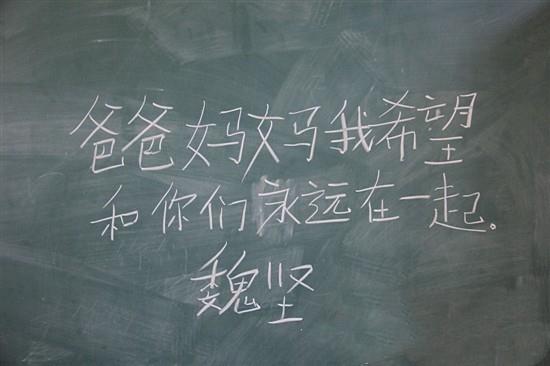 爸爸妈妈我希望
和你们永远在一起。
魏坚